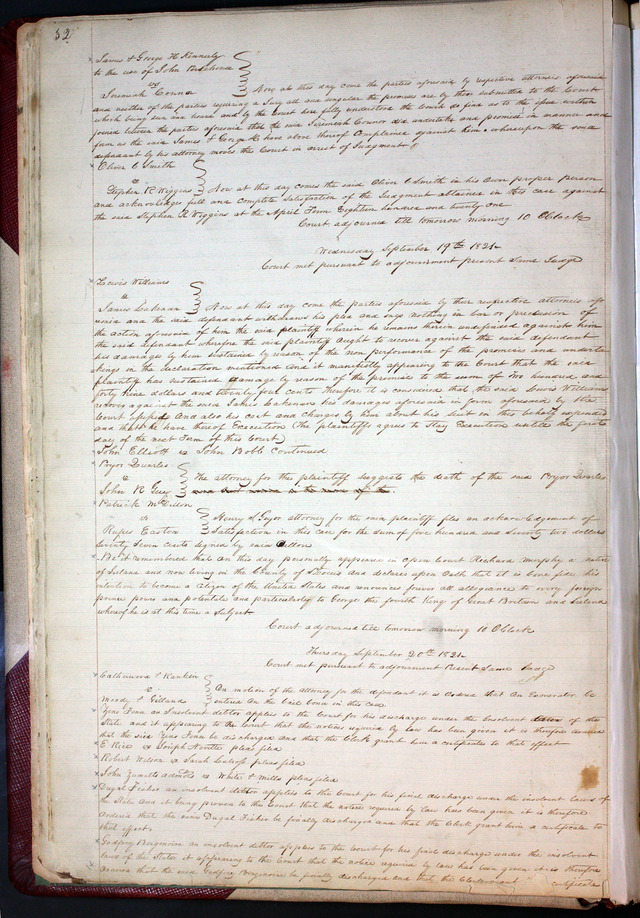 52
James & George H Kennerly
to the use of John
vs
Jeremiah Connor Now at this day come the parties aforesaid by respective attornies aforesaid
and neither of the parties requiring a Jury all and singular the premises are by them submitted to the Court
which being seen and heard and by the Court here fully understood the Court do find as to the issue within
joined between the parties aforesaid that the said Jeremiah Connor did undertake and promise in manner and
form as the said James & George H have above thereof complained against him. whereupon the said
defendant by his attorney moves the Court in arrest of Judgment.
Oliver C Smith
vs
Stephen R Wiggins Now at this day comes the said Oliver C Smith in his own proper person
and acknowledges full and complete satisfaction of the Judgment obtained in this case against
the said Stephen R Wiggins at the April Term Eighteen hundred and twenty one
Court adjourned till tomorrow morning 10 OClock
Wednesday September 19th 1821
Court met pursuant to adjournment present Same Judge
Lewis Williams
vs
James Now at this day come the parties aforesaid by their respective attornies afo
resaid and the said defendant withdraws his plea and says nothing in bar or preclusion of
the action aforesaid of him the said plaintiff wherein he remains therein undefended against him
the said defendant wherefore the said plaintiff ought to recover against the said defendant
his damages by him sustained by reason of the non performance of the promises and underta
kings in the declaration mentioned And it manifestly appearing to the Court that the said
plaintiff has sustained damage by reason of the premises to the sum of Two hundred and
forty nine dollars and twenty four cents Therefore it is considered that the said Lewis Williams
recover against the said James his damages aforesaid in form aforesaid by the
Court And also his cost and charges by him about his suit in this behalf expended
and that he have thereof Execution (The plaintiffs agree to Stay Execution untill the first
day of the next Term of this Court)
John Elliott vs John Boble Continued
Pryor Quarles
vs The attorney for the plaintiff suggests the death of the said Pryor Quarles
John R Guy
Patrick McDillon
vs Henry S Geyer attorney for the said plaintiff files an acknowledgement of
Rufus Easton Satisfaction in this case for the sum of five hundred and Seventy two dollars
Seventy Seven Cents signed by said Dillon
Be it remembered that on this day personally appeared in open Court Richard Murphy a native
of Ireland and now living in the County of St Louis and declares upon Oath that it is bona fide his
intention to become a citizen of the United States and renounces forever all allegiance to every foreign
prince power and potentate and particularly to George the fourth King of Great Britain and Ireland
whereof he is at this time a Subject.
Court adjourned till tomorrow morning 10 OClock
Thursday September 20th 1821
Court met pursuant to adjournment Present Same Judge
Catherwood & Rankin
vs On motion of the attorney for the defendant it is ordered that An Exonerator be
Moody & Gilland entered On the bail bond in this case
Zeno Fenn an Insolvent debtor applies to the Court for his discharge under the Insolvent of this
State and it appearing to the Court that the notice required by law has been given it is therefore ordered
that the said Zeno Fenn be discharged and that the Clerk grant him a certificate to that effect
E Rice vs Joseph pleas filed
Robert Wilson vs Sarah pleas filed
John admr vs White & Mills pleas filed
Dugal Fisher an insolvent debtor applies to this Court for his final discharge under the insolvent laws of
the State and it being proven to the Court that the notice required by law has been given it is therefore
Ordered that the said Dugal Fisher be finally discharged and that the Clerk grant him a certificate to
that effect.
Godfrey an insolvent debtor applies to the Court for his final discharge under the insolvent
laws of the State it appearing to the Court that the notice required by law has been given it is therefore
Ordered that the said Godfrey be finally discharged and that the Clerk certificate